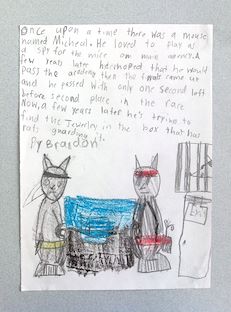 Once upon a time there was a mouse
named Micheal. He loved to play as
a spy for the mice own main agency. A
few years later he hoped that he would
pass the academy then the finals came up
and he passed with only one second left
before second place in the race
Now, a few years later he's trying to
find the Jewerley in the box that has
rats guarding it.
By Brandon